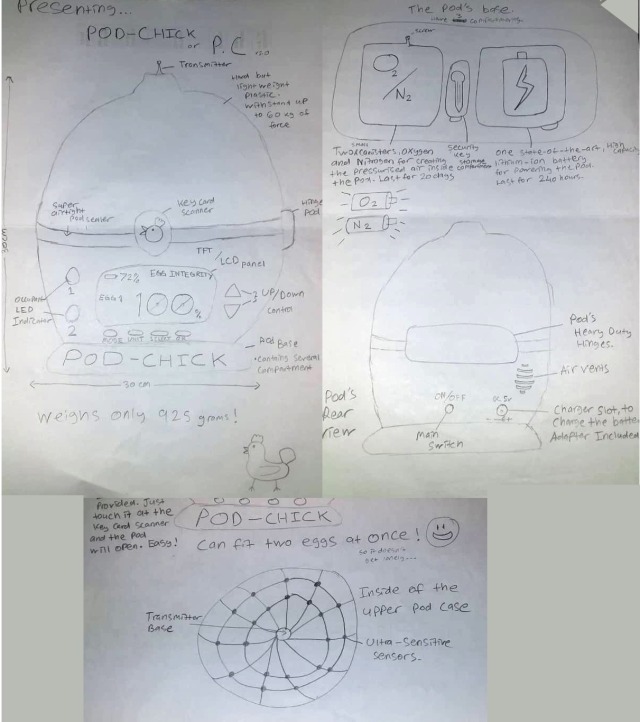 Presenting...
POD-CHICK
or P.C
Transmitter
light weight
plastic.
withstand up
to 60 kg of
force
Super
airtight
Pod sealer
Key Card
scanner
Hinge
Pod
30cm
TFT/
LCD panel
72% EGG INTEGRITY
EGG 1
100%
UP/Down
control
Occupant
LED
Indicator
1
2
POD-CHICK
Pod Base
•contains several
compartment
30 cm
Weighs only 925 grams!
The Pod's base.
compartments
screw
O2/N2
Two small canisters, oxygen
and Nitrogen for creating
the pressurised air inside
the Pod. Last for 20 days
security
key
storage
compartment
one state-of-the-art, High capacity
lithium-ion battery
for powering the Pod.
Last for 240 hours.
O2
N2
Pod's
Heavy Duty
Hinges.
Air vents
Pod's
Rear
View
ON/OFF
Main
Switch
DC 5V
Charger slot, to
charge the batte
Adapter Included
Provided. Just
touch it at the
Key Card scanner
and the Pod
will open. Easy!
POD-CHICK
Can fit two eggs at once!
so it doesn't
get lonely...
Transmitter
Base
Inside of the
upper Pod case
Ultra-Sensitive
sensors.